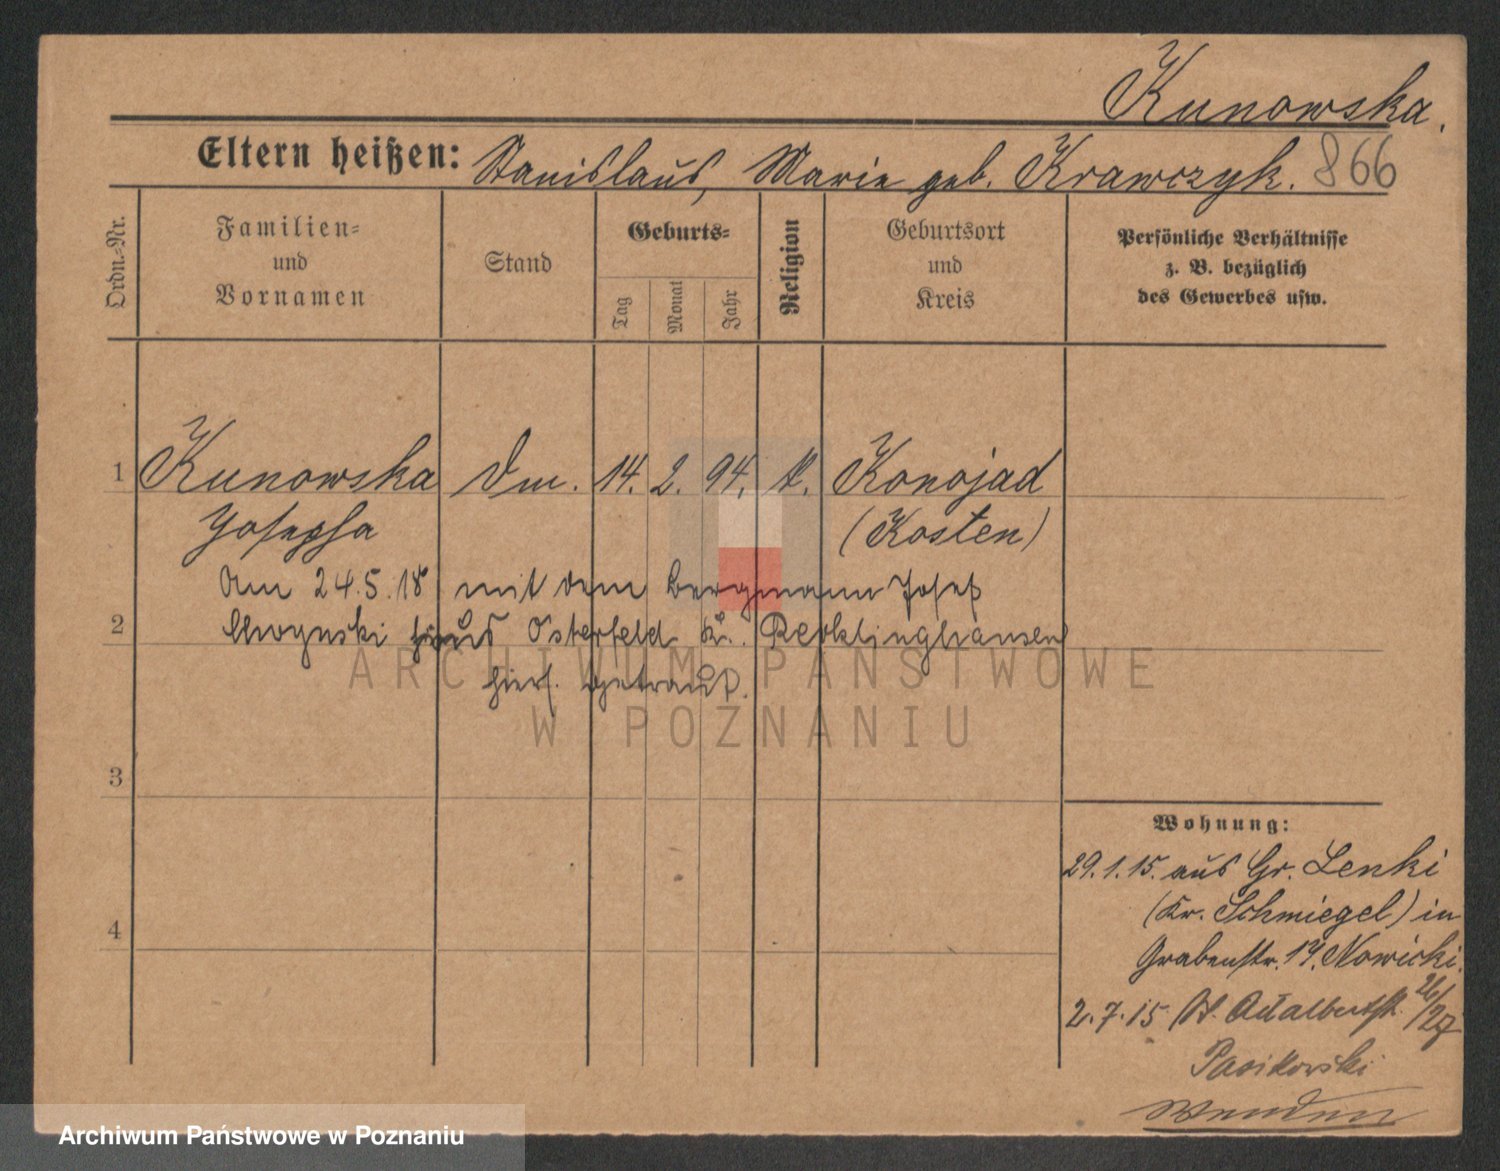 Kunowska.
Eltern heißen: Stanislaus, Marie geb. Krawczyk. 866
Ordn.=Nr.
Familien=
und
Vornamen
Stand
Geburts=
Tag
Monat
Jahr
Religion
Geburtsort
und
Kreis
Persönliche Verhältnisse
z. B. bezüglich
des Gewerbes usw.
1 Kunowska Dm. 14. 2. 94. k. Konojad
Josepha (Kosten)
Am 24.5.18 mit dem Bergmann Josef
2 aus Osterfeld Kr. Recklinghausen
hier getraut.
3
4
Wohnung:
29.1.15. aus Gr. Lenki
(Kr. Schmiegel) in
Grabenstr. 14. Nowicki.
2.7.15 St. Adalbertstr. 26/27
Pasikowski
ARCHIWUM PAŃSTWOWE
W POZNANIU
Archiwum Państwowe w Poznaniu